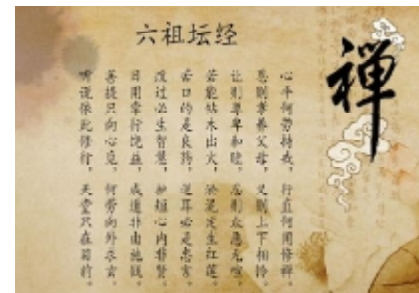 六祖坛经
禪
心平何劳持戒，行直何用修禅。
恩则孝养父母，义则上下相怜。
让则尊卑和睦，忍则众恶无喧。
若能钻木出火，淤泥定生红莲。
苦口的是良药，逆耳必是忠言。
改过必生智慧，护短心内非贤。
日用常行饶益，成道非由施钱。
菩提只向心觅，何劳向外求玄。
听说依此修行，天堂只在目前。